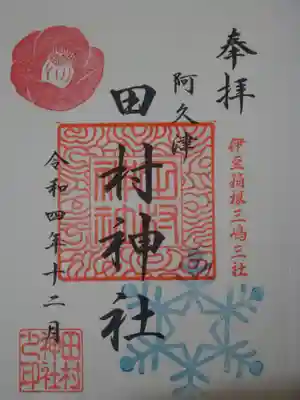 奉拝
伊豆箱根三嶋三社
阿久津
田村神社
令和四年十二月
田村
神社
之印